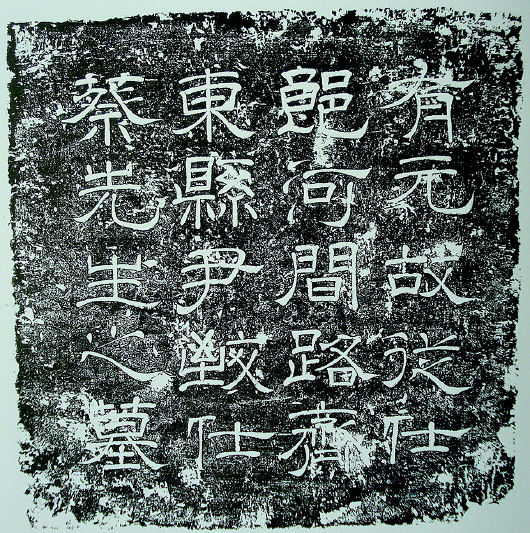 有元故從仕
郎河間路齊
東縣尹致仕
蔡先生之墓